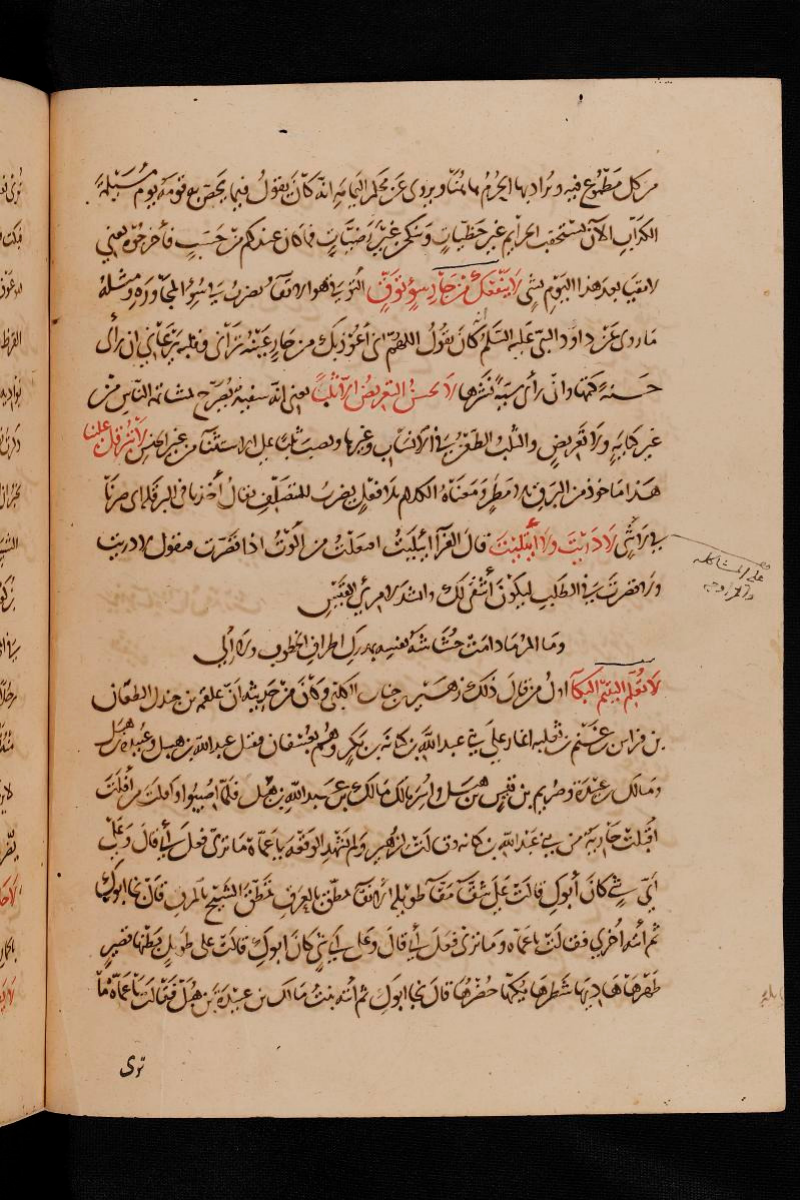 من كل مطموع فيه ويراد بها الحرم هاهنا ويروى عن محكم اليمامة انه كان يقول فيما يحض به قومه يوم مسيلمة
الكذاب الآن تستحقب الحرايم غير حظيات وينكحن غير رضيات فما كان عندكم من حسب فأخرجوه يعني
لا بقيا بعد هذا اليوم بشئ لا ينفعك من جار سوء توق التوقي هو الاتقاء يضرب في سوء المجاورة ومثله
ما روى عن داود النبى عليه السلم كان يقول اللهم انى اعوذ بك من جار عينه ترانى وقلبه يرعاني ان رأى
حسنة كتمها وان رأى سيئة نشرها لا يحسن التعريض الا ثلبا يعنى انه سفيه يصرح بمشاتمة الناس من
غير كناية ولا تعريض والثلب الطعن في الانساب وغيرها ونصب ثلبا على الاستثناء من غير الجنس لا تبرقل علينا
هذا ماخوذ من البرق بلا مطر ومعناه الكلام بلا فعل يضرب للمتصلف يقال أخذنا في البرقلة اي صرنا
في لا شئ لا دريت ولا ائتليت قال الفرآ ائتليت افتعلت من الوت اذا قصرت فيقول لا دريت
ولا قصرت في الطلب ليكون أشقى لك وانشد لامرئ القيس
وما المرؤ ما دامت حشاشة نفسه بمدرك اطراف الخطوب ولا الي
لا تعلم اليتيم البكا اول من قال ذلك زهير بن جناب الكلبى وكان من حديثه ان علقمة بن جذل الطعان
بن فراس بن غنم بن ثعلبة اغار على بني عبد الله بن كنانة بن بكر وهم بعسفان فقتل عبد الله بن هبل وعبيدة بن هبل
ومالك بن عبيدة وصريم بن قيس بن هبل واسر مالك بن عبد الله بن هبل فلما اصيبوا وافلت من أفلت
اقبلت جارية من بني عبد الله بن كنانة فقالت لزهير ولم يشهد الوقعة يا عماه ما ترى فعل بي أبي قال وعلى
اى شئ كان أبوك قالت على شقآ مقآ طويلة الانقآ تمطق بالعرق تمطق الشيخ بالمرق قال نجا ابوك
ثم أتته اخرى فقالت يا عماه وما ترى فعل أبي قال وعلى اي شئ كان ابوك قالت على طويل بطنها قصير
ظهرها هاديها شطرها يكبها حضرها قال نجا ابوك ثم أتته بنت مالك بن عبيدة بن هبل فقالت يا عماه ما
ترى